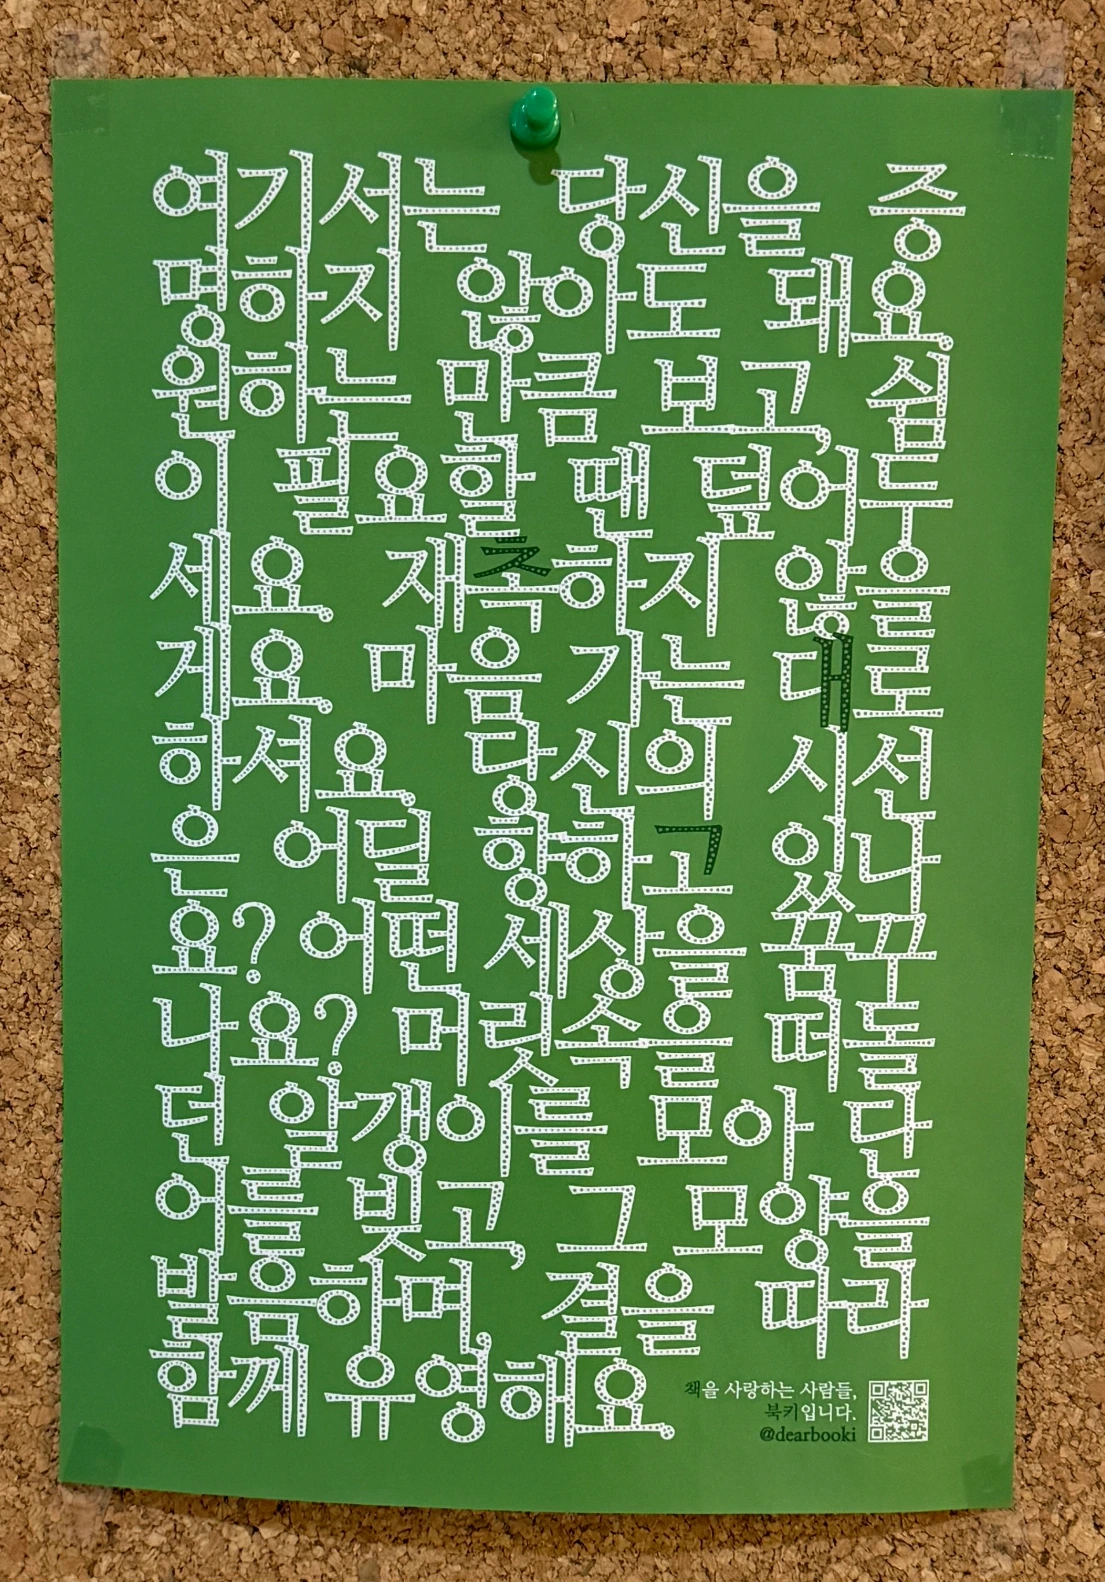 여기서는 당신을 증
명하지 않아도 돼요.
원하는 만큼 보고, 쉼
이 필요할 땐 덮어두
세요. 재촉하지 않을
게요. 마음 가는 대로
하셔요. 당신의 시선
은 어딜 향하고 있나
요? 어떤 세상을 꿈꾸
나요? 머릿속을 떠돌
던 알갱이를 모아 단
어를 빚고, 그 모양을
발음하며, 결을 따라
함께 유영해요.
책을 사랑하는 사람들,
북키입니다.
@dearbooki